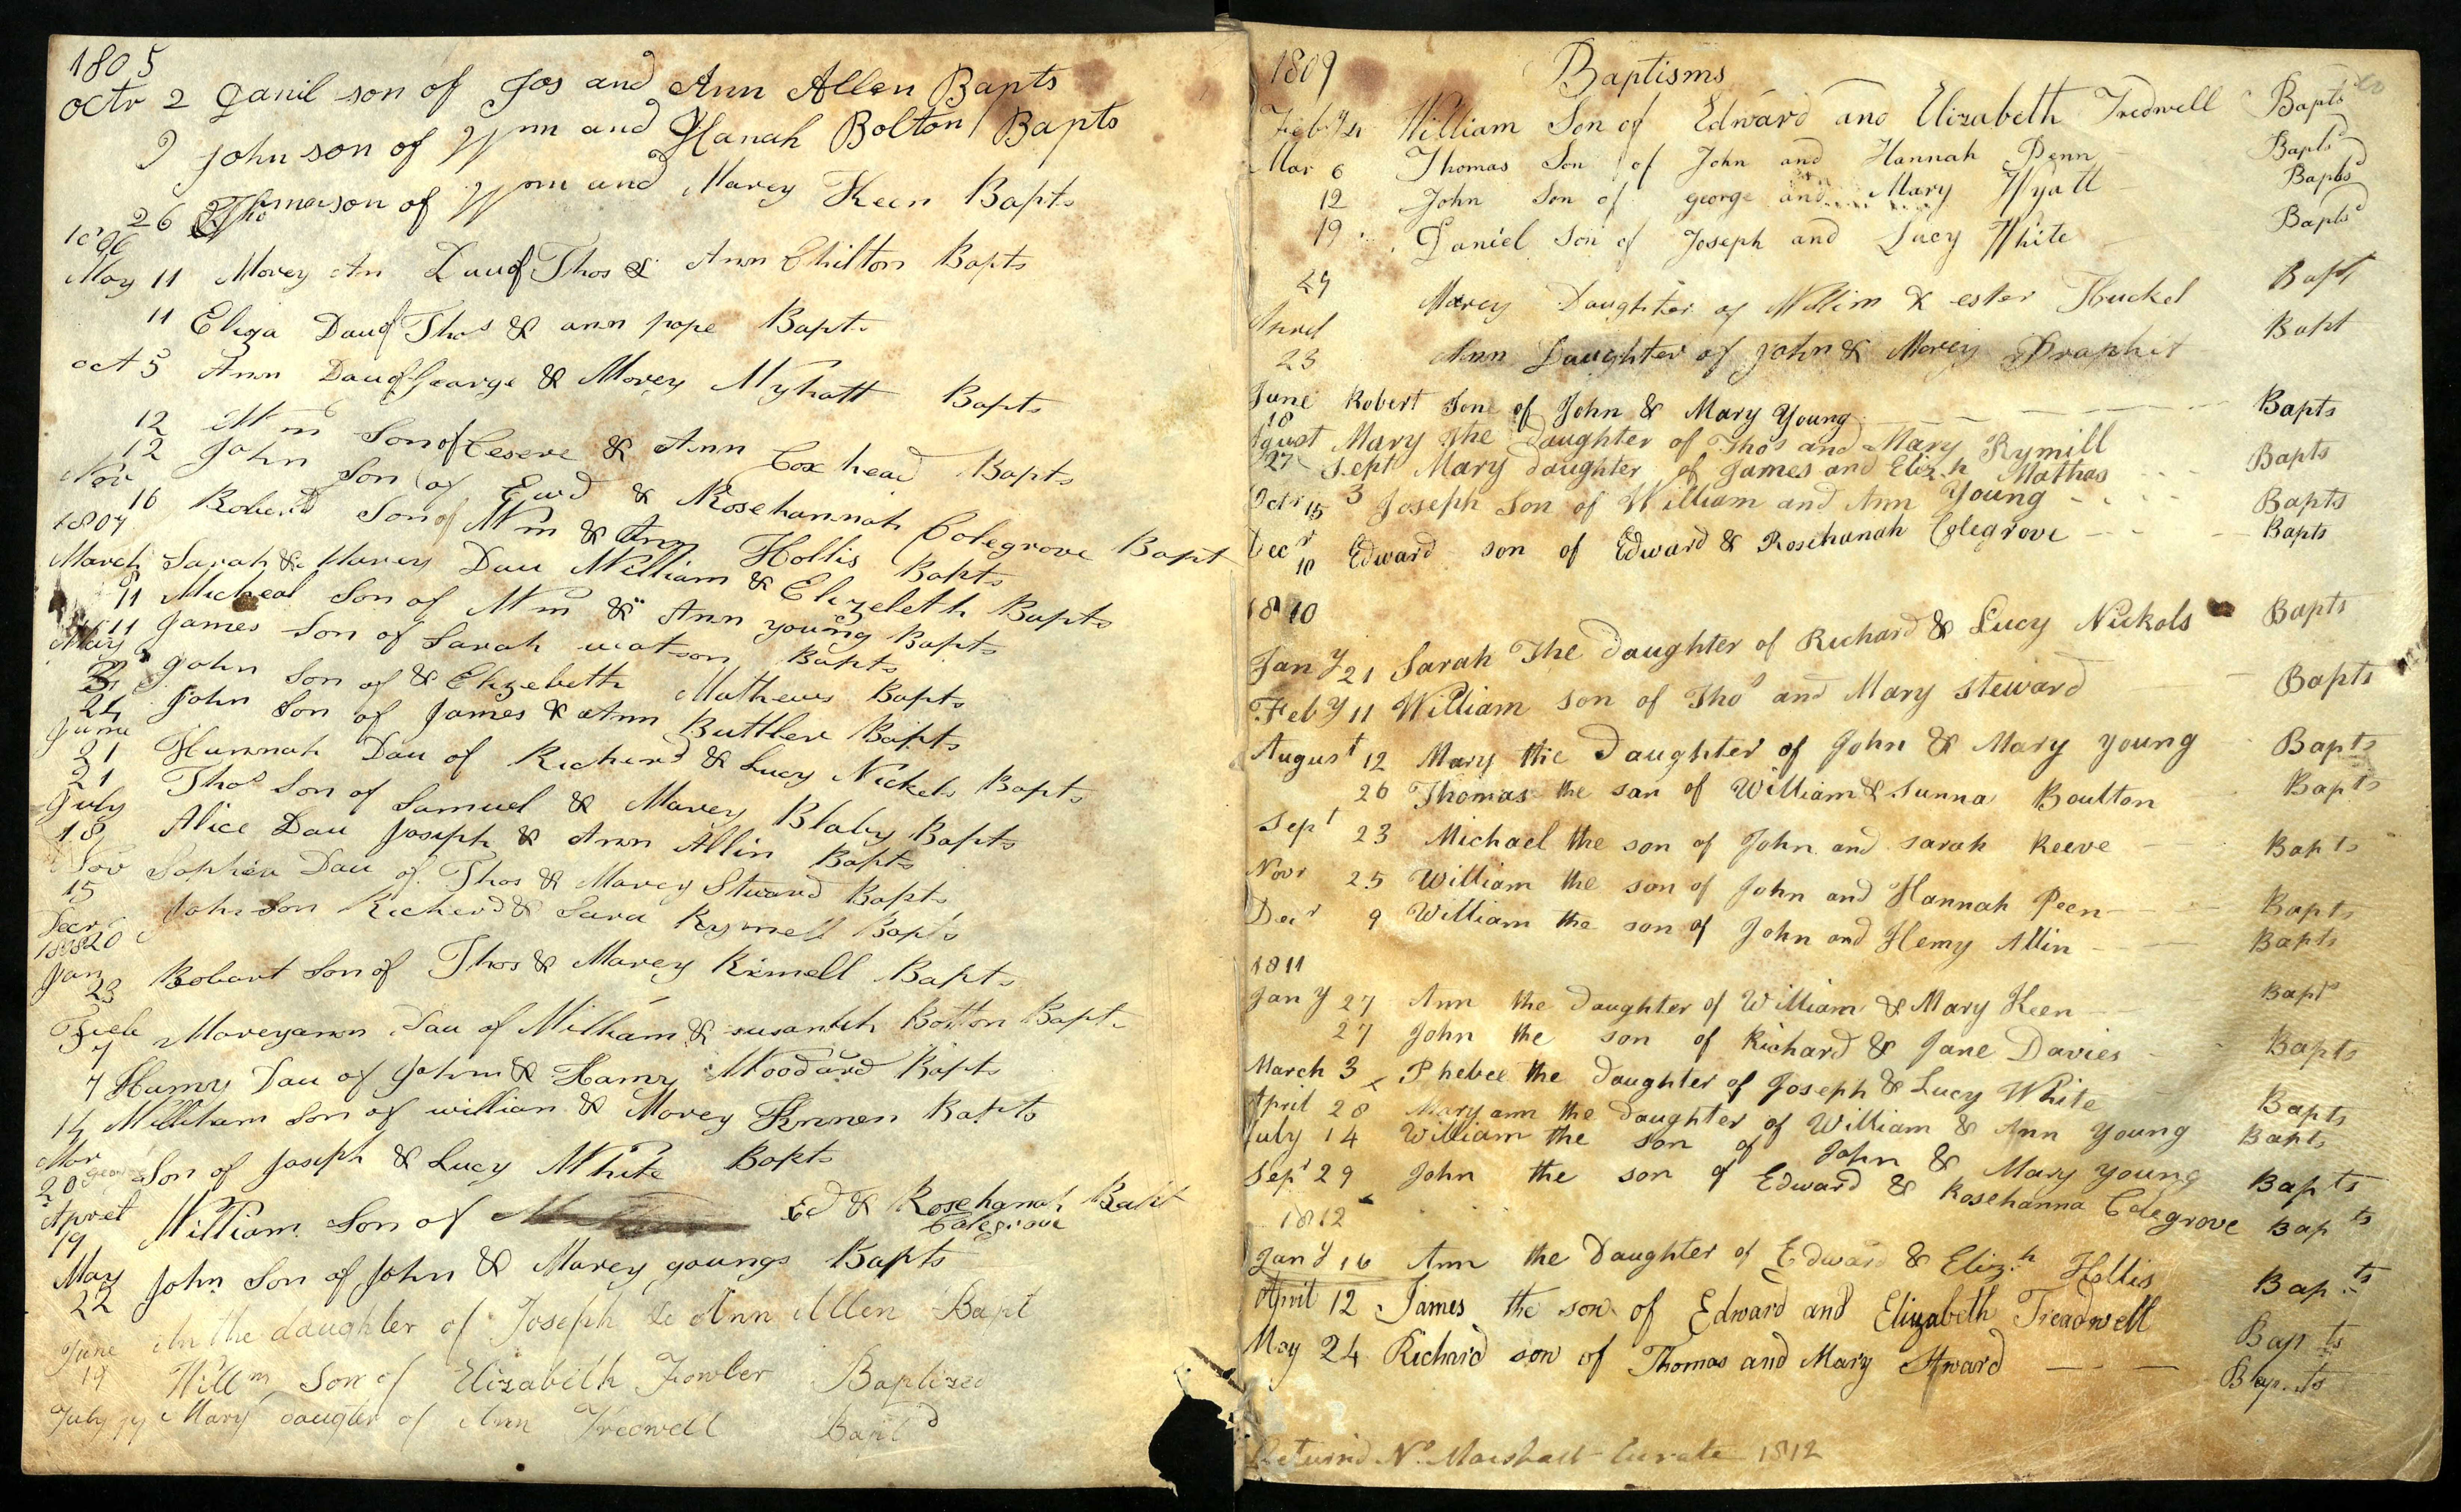 1805
octr 2 Danil son of Jos and Ann Allen Bapts
9 John son of Wm and Hanah Bolton Bapts
26 son of Wm and Marey Keen Bapts
May 11 Marey An Dau of Thos & Ann Chilton Bapts
11 Eliza Dau of Thos & ann pope Bapts
oct 5 Ann Dau of George & Marey Wyhatt Bapts
12 Wm Son of Ceseve & Ann Cox head Bapts
12 John Son of Ewd & Rosehannah Colegrove Bapt
Nov 16 Robert Son of Wm & Ann Hollis Bapts
1807
March Sarah & Marey Dau William & Elizebeth Bapts
11 Micheal Son of Wm & Ann young Bapts
11 James Son of Sarah watson Bapts
May John Son of & Elizebeth Mathews Bapts
24 John Son of James & Ann Buttler Bapts
June
21 Hannah Dau of Richerd & Lucy Nickels Bapts
21 Thos Son of Samuel & Marey Blaby Bapts
July
18 Alice Dau Joseph & Ann Allin Bapts
Nov
15 Sophia Dau of Thos & Marey Steward Bapts
Decr
20 John Son Richerd & Sara Rymell Bapts
Jan
23 Robart Son of Thos & Marey Rimell Bapts
Feb
7 Mareyann Dau of William & susanah Bolton Bapts
7 Hanny Dau of John & Hanny Woodard Bapts
14 William Son of willian & Marey Bapts
Mar
20 george Son of Joseph & Lucy White Bapts
Aprel
19 William Son of Ed & Rosehanah Bapt
Colegrove
May
22 John Son of John & Marey youngs Bapts
June the daughter of Joseph & Ann Allen Bapt
19 Willm Son of Elizabeth Fowler Baptized
July 17 Mary daugter of Ann Tredwell Baptd
1809 Baptisms
Feby 24 William Son of Edward and Elizabeth Tredwell Baptsd
Mar 6 Thomas Son of John and Hannah Penn Baptsd
12 John Son of george and Mary Wyatt Baptsd
19 Daniel Son of Joseph and Lucy White Baptsd
29 Marey Daughter of Willim & ester Huckel Bapt
Aprel
23 Ann Daughter of John & Marey Praphit Bapt
June
18 Robert Sone of John & Mary Young Bapts
Agust
27 Mary The Daughter of Thos and Mary Rymill Bapts
Sept 3 Mary daughter of James and Elizh Mathas
Octr 15 Joseph Son of William and Ann Young Bapts
Decr 10 Edward son of Edward & Rosehanah Colegrove Bapts
1810
Jany 21 Sarah The Daughter of Richard & Lucy Nickols Bapts
Feby 11 William Son of Thos and Mary Steward Bapts
August 12 Mary the Daughter of John & Mary young Bapts
26 Thomas the san of William & Sunna Boulton Bapts
Sept 23 Michael the son of John and Sarah Reeve Bapts
Novr 25 William the son of John and Hannah Peen Bapts
Decr 9 William the son of John and Hemy Allin Bapts
1811
Jany 27 Ann the Daughter of William & Mary Keen Bapts
27 John the son of Richard & Jane Davies Bapts
March 3 Phebee the Daughter of Joseph & Lucy White Bapts
April 28 Mary ann the Daughter of William & Ann Young Bapts
July 14 William the son of John & Mary young Bapts
Sept 29 John the son of Edward & Rosehanna Colegrove Bapts
1812
Jany 16 Ann the Daughter of Edward & Elizh Hollis Bapts
April 12 James the son of Edward and Elizabeth Treadwell Bapts
May 24 Richard son of Thomas and Mary Stward Bapts
Returnd N. Marshall Curate 1812